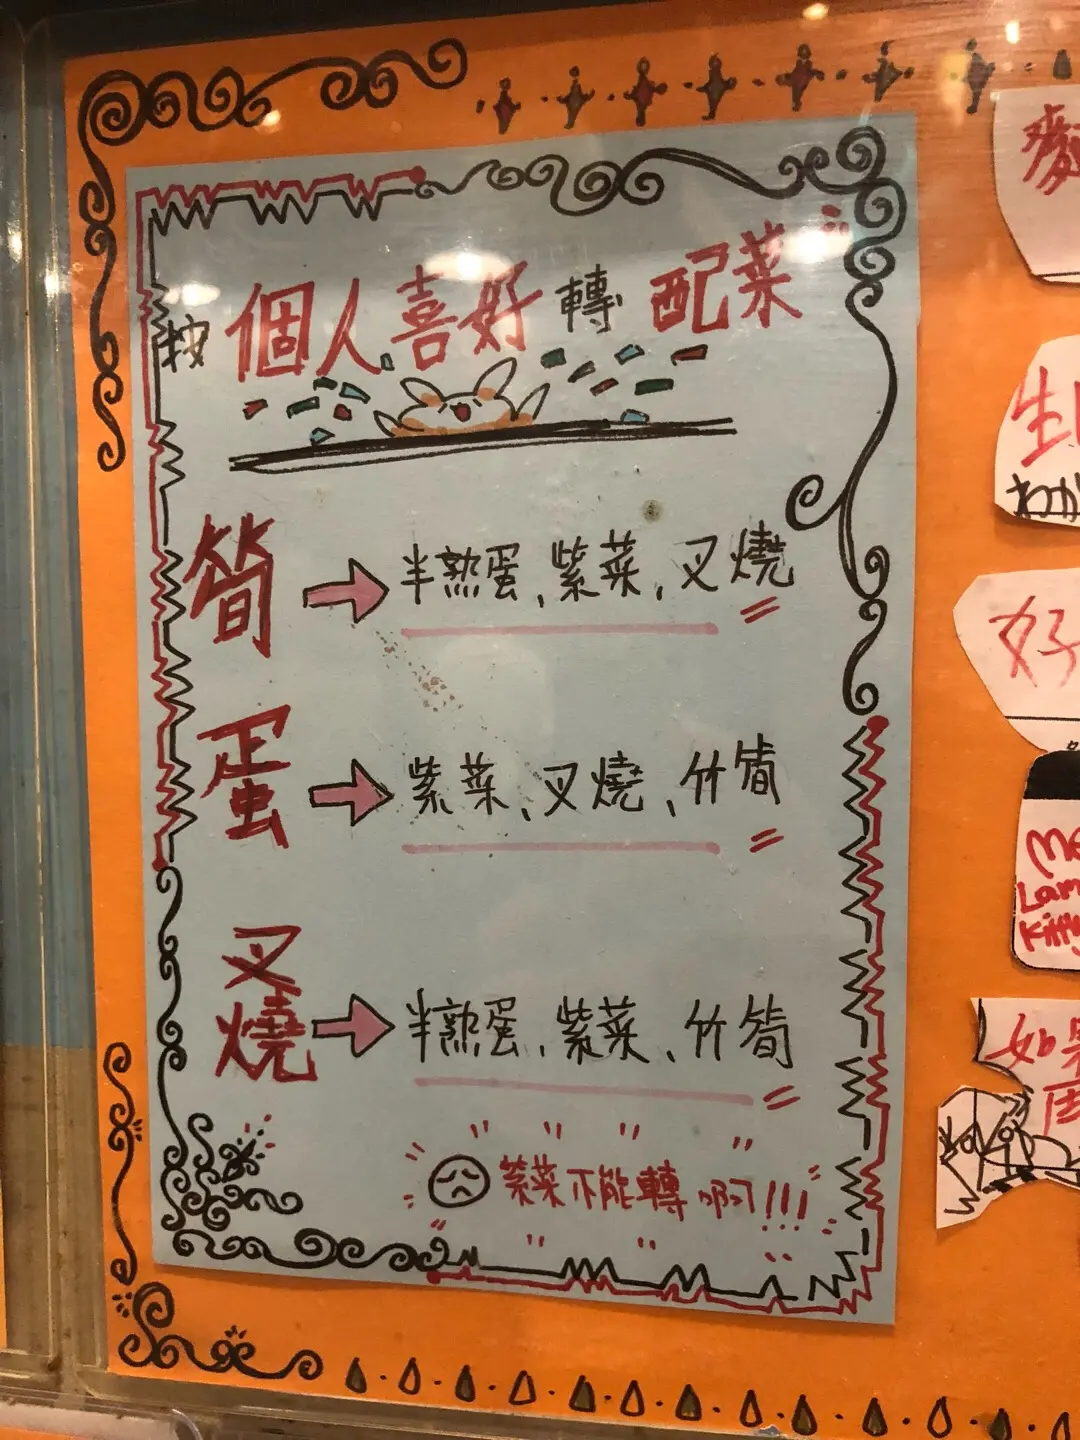 按個人喜好轉配菜
筍 → 半熟蛋、紫菜、叉燒
蛋 → 紫菜、叉燒、竹筍
叉燒 → 半熟蛋、紫菜、竹筍
紫菜不能轉啊!!!
生
わか
好
Me
Lam
Kitty
如果